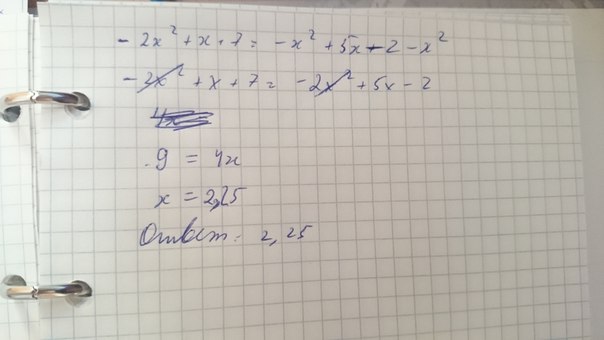 - 2x² + x + 7 = -x² + 5x - 2 - x²
- 2x² + x + 7 = -2x² + 5x - 2
4x
9 = 4x
x = 2,25
Ответ: 2,25